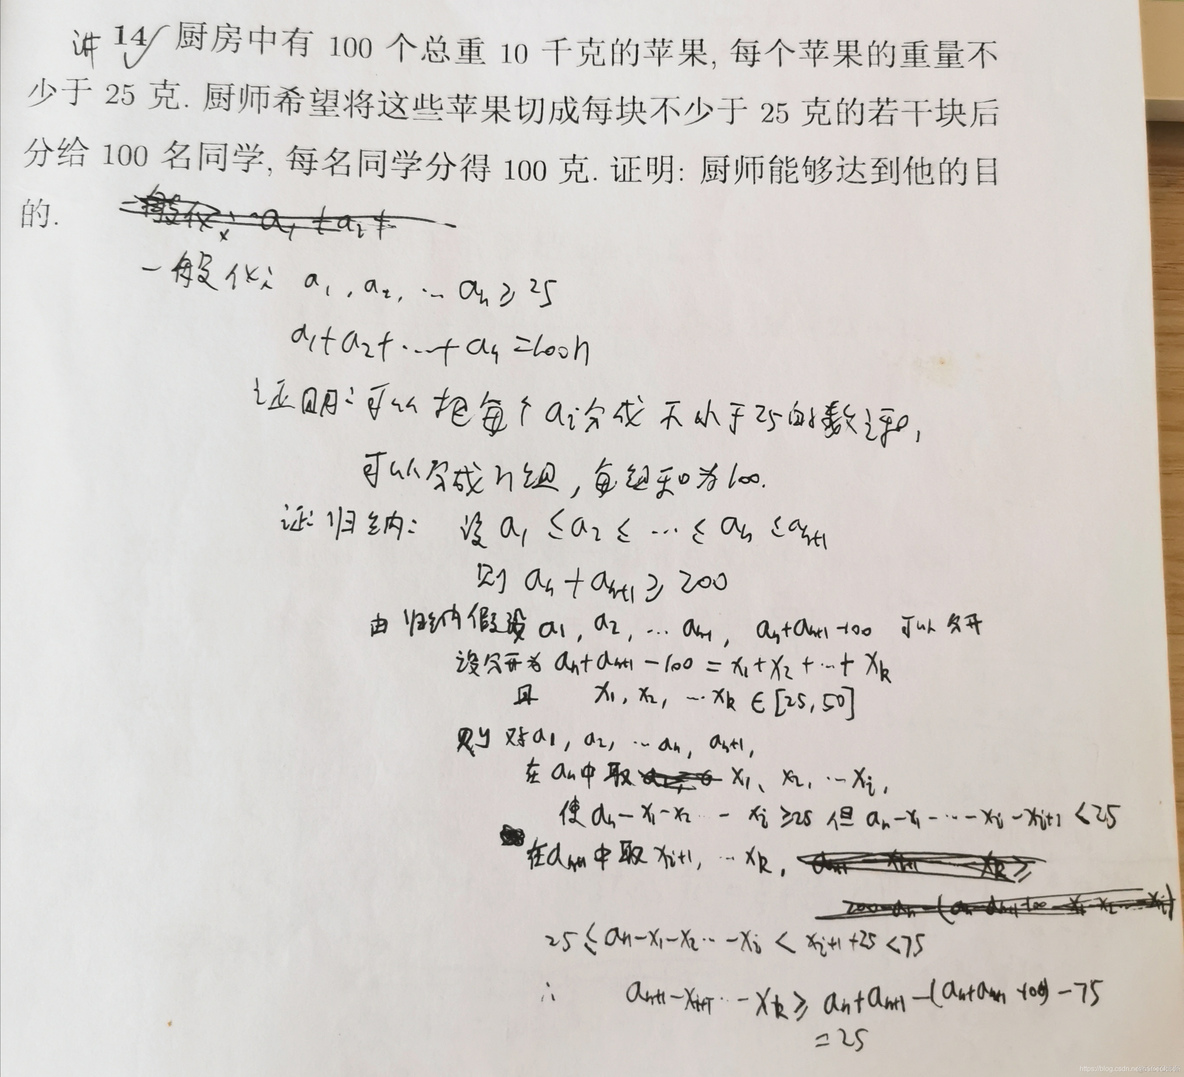 讲 14 厨房中有 100 个总重 10 千克的苹果, 每个苹果的重量不
少于 25 克. 厨师希望将这些苹果切成每块不少于 25 克的若干块后
分给 100 名同学, 每名同学分得 100 克. 证明: 厨师能够达到他的目
的.
一般化: a₁, a₂, … aₙ ≥ 25
a₁+a₂+…+aₙ=100n
证明: 可以把每个 aᵢ 分成不小于25的数之和,
可以分成n组, 每组和为100.
证: 归纳: 设 a₁ ≤ a₂ ≤ … ≤ aₙ ≤ aₙ₊₁
则 aₙ + aₙ₊₁ ≥ 200
由归纳假设 a₁, a₂, … aₙ₋₁, aₙ+aₙ₊₁-100 可以分开
设分开为 aₙ+aₙ₊₁-100 = x₁+x₂+…+xₖ
且 x₁, x₂, …xₖ ∈ [25,50]
则对 a₁, a₂, … aₙ, aₙ₊₁,
在 aₙ 中取 x₁、x₂, …xᵢ,
使 aₙ-x₁-x₂ … -xᵢ ≥25 但 aₙ-x₁-…-xᵢ-xᵢ₊₁ <25
在 aₙ₊₁ 中取 xᵢ₊₁, …xₖ,
25 ≤ aₙ-x₁-x₂…-xᵢ < xᵢ₊₁+25 <75
∴ aₙ₊₁-xᵢ₊₁…-xₖ ≥ aₙ+aₙ₊₁-(aₙ+aₙ₊₁-100)-75
=25